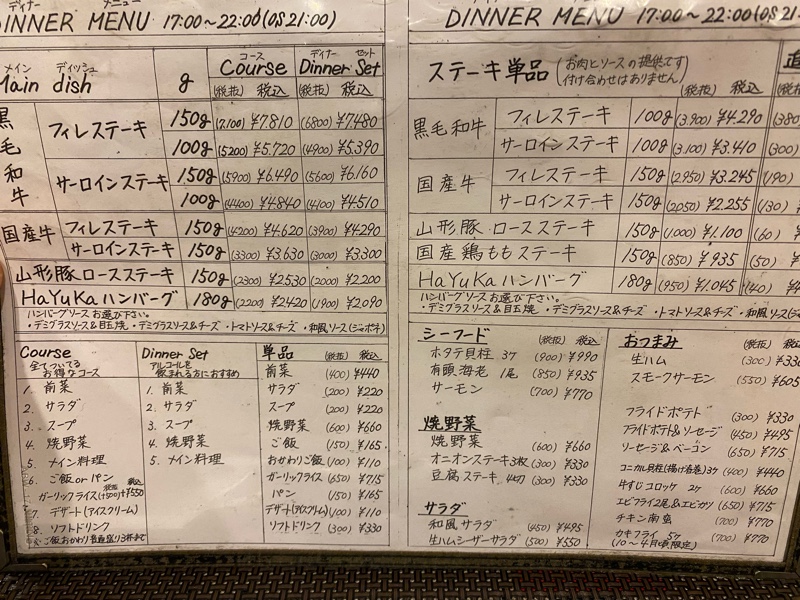 ディナー メニュー
DINNER MENU 17:00～22:00(OS 21:00)
メイン ディッシュ コース ディナー セット
Main dish g Course Dinner Set
(税抜) 税込 (税抜) 税込
黒毛和牛 フィレステーキ 150g (7100) ¥7.810 (6800) ¥7.480
100g (5200) ¥5.720 (4900) ¥5.390
サーロインステーキ 150g (5900) ¥6.490 (5600) ¥6.160
100g (4400) ¥4.840 (4100) ¥4.510
国産牛 フィレステーキ 150g (4200) ¥4.620 (3900) ¥4.290
サーロインステーキ 150g (3300) ¥3.630 (3000) ¥3.300
山形豚ロースステーキ 150g (2300) ¥2.530 (2000) ¥2.200
HaYuKaハンバーグ 180g (2200) ¥2.420 (1900) ¥2.090
ハンバーグソースお選び下さい。
・デミグラスソース&目玉焼 ・デミグラスソース&チーズ ・トマトソース&チーズ ・和風ソース(ジャポネ)
Course
全てついてる
お得なコース
1. 前菜
2. サラダ
3. スープ
4. 焼野菜
5. メイン料理
6. ご飯orパン
ガーリックライス(+500)+¥550
税抜 税込
7. デザート(アイスクリーム)
8. ソフトドリンク
Dinner Set
アルコールを
飲まれる方におすすめ
1. 前菜
2. サラダ
3. スープ
4. 焼野菜
5. メイン料理
単品 (税抜) 税込
前菜 (400) ¥440
サラダ (200) ¥220
スープ (200) ¥220
焼野菜 (600) ¥660
ご飯 (150) ¥165
おかわりご飯 (100) ¥110
ガーリックライス (650) ¥715
パン (150) ¥165
デザート(アイスクリーム) (100) ¥110
ソフトドリンク (300) ¥330
DINNER MENU 17:00～22:00(OS 21:
ステーキ単品 (お肉とソースの提供です
付け合わせはありません)
(税抜) 税込
黒毛和牛 フィレステーキ 100g (3.900) ¥4.290 (380
サーロインステーキ 100g (3.100) ¥3.410 (300
国産牛 フィレステーキ 150g (2950) ¥3.245 (190)
サーロインステーキ 150g (2050) ¥2.255 (130)
山形豚・ロースステーキ 150g (1000) ¥1.100 (60)
国産鶏ももステーキ 150g (850) ¥935 (50)
HaYuKaハンバーグ 180g (950) ¥1.045 (40)
ハンバーグソースお選び下さい。
・デミグラスソース&目玉焼 ・デミグラスソース&チーズ ・トマトソース&チーズ ・和風ソース
シーフード (税抜) 税込
ホタテ貝柱 3ケ (900) ¥990
有頭海老 1尾 (850) ¥935
サーモン (700) ¥770
焼野菜
焼野菜 (600) ¥660
オニオンステーキ3枚 (300) ¥330
豆腐ステーキ 4切 (300) ¥330
サラダ
和風サラダ (450) ¥495
生ハムシーザーサラダ (500) ¥550
おつまみ (税抜) 税込
生ハム (300) ¥330
スモークサーモン (550) ¥605
フライドポテト (300) ¥330
フライドポテト&ソーセージ (450) ¥495
ソーセージ&ベーコン (650) ¥715
(400) ¥440
牛すじコロッケ 2ケ (600) ¥660
エビフライ2尾&エビカツ (650) ¥715
チキン南蛮 (700) ¥770
カキフライ 5ケ (700) ¥770
(10～4月頃限定)